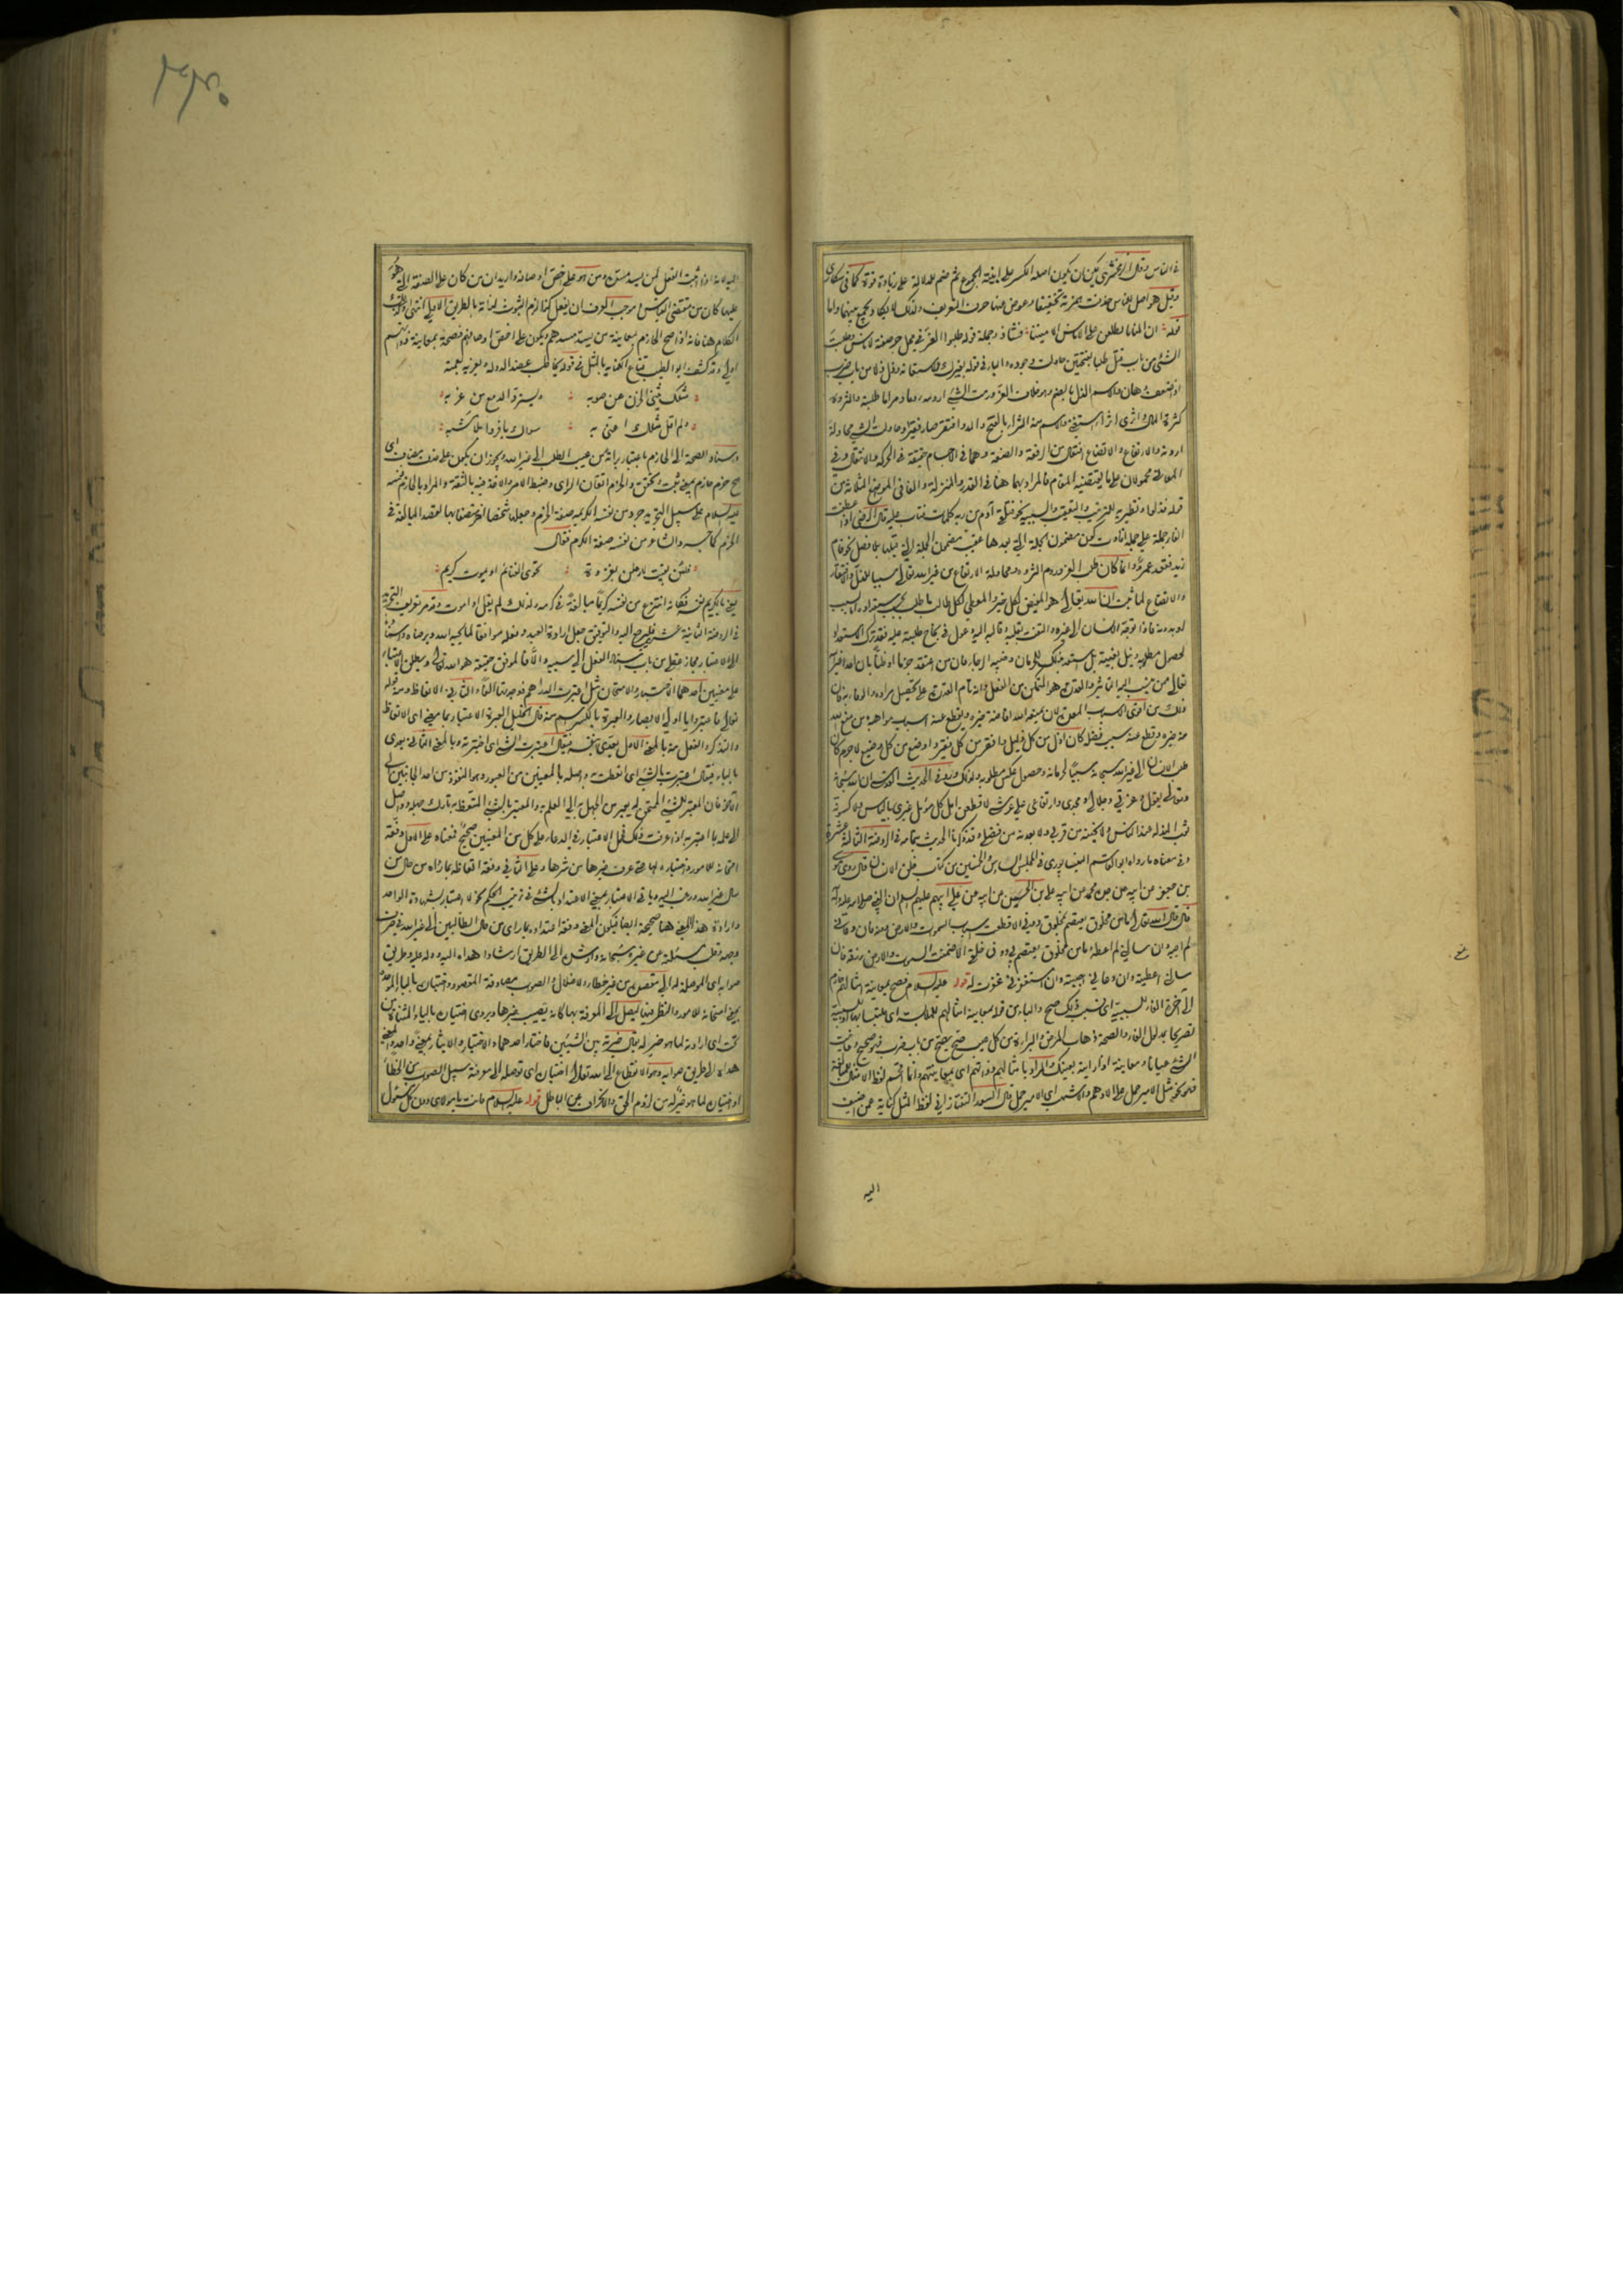 في الناس وقال الزمخشري يمكن ان يكون اصله الكسر على ابنية الجموع ثم ضم للدلالة على زيادة قوة كما في سكارى
وقيل هو اصل للناس حذفت همزته تخفيفا وعوض عنها حرف التعريف ولذلك لا يكاد يجمع بينهما واما
قوله ان المنايا يطلعن على الاناس الآمنينا فشاذ وجملة قوله طلبوا العز في محل جر صفة لاناس وطلبت
الشئ من باب قتل طلبا بفتحتين حاولت وجوده والباء في قوله بغيرك للاستعانة وذل ذلا من باب ضرب
اذا ضعف وهان والاسم الذل بالضم وهو خلاف العز ورمت الشئ ارومه روما ومراما طلبته والثروة
كثرة المال واثرى اثراء استغنى والاسم منه الثراء بالفتح والمد وافتقر صار فقيرا وحاولت الشئ محاولة
اردته والارتفاع والاتضاع افتعال من الرفعة والضعة وهما في الاجسام حقيقة في الحركة والانتقال وفي
المعاني محمولان على ما يقتضيه المقام فالمراد بهما هنا في القدر والمنزلة والفا في المواضع الثلاثة من
قوله فذلوا ونظيريه للترتيب والتعقيب والسببية نحو فتلقى آدم من ربه كلمات فتاب عليه قال الرضي اذا عطفت
الفاء جملة على جملة افادت كون مضمون الجملة التي بعدها عقيب مضمون الجملة التي قبلها بلا فصل نحو قام
زيد فقعد عمرو وانما كان طلب العز وروم الثروة ومحاولة الارتفاع من غير الله تعالى سببا للذل والافتقار
والاتضاع لما ثبت ان الله تعالى هو المفيض لكل خير والمعطي لكل طالب ما طلب بحسب استعداده
فاذا توجه الانسان الى غيره والتفت بقلبه وقالبه اليه وعول في نجاح طلبته عليه فقد ترك الاستعداد
لحصول مطلوبه ونيل بغيته بل استعد بذلك للحرمان وخيبة الرجاء فان من اعتقد جزما او ظنا بان احدا غير الله
تعالى ممن ينسب اليه التاثير والقدرة هو المتمكن من الفعل وانه تام القدرة على تحصيل مراده والوفاء به كان
ذلك من اقوى الاسباب المعدة لان يمنعه الله افاضة خيره ويقطع عنه اسباب مواهبه ومن منع الله
عنه خيره وقطع عنه سبب فضله كان اذل من كل ذليل وافقر من كل فقير واوضع من كل وضيع لا جرم كان
طلب الانسان الى غير الله سبحانه سببا لحرمانه وحصول عكس مطلوبه ولذلك ورد في الحديث القدسي ان الله سبحانه
وتعالى يقول وعزتي وجلالي ومجدي وارتفاعي على عرشي لاقطعن امل كل مؤمل غيري بالياس ولاكسونه
ثوب المذلة عند الناس ولانحينه من قربي ولابعدنه من فضلي وقد ذكرنا الحديث بتمامه في الروضة الثالثة عشرة
وفي معناه ما رواه ابو القاسم النيسابوري في المجلس السادس والخمسين من كتاب خلق الانسان قال روى موسى
بن جعفر عن ابيه عن جده محمد عن ابيه علي بن الحسين عن ابيه عن علي ابيهم عليهم السلام ان النبي صلى الله عليه وآله
قال قال الله تعالى ما من مخلوق يعتصم بمخلوق دوني الا قطعت اسباب السموات والارض دونه فان دعاني
لم اجبه وان سألني لم اعطه وما من مخلوق يعتصم بي دون خلقي الا ضمنت السموات والارض رزقه فان
سألني اعطيته وان دعاني اجبته وان استغفرني غفرت له قوله عليه السلام فصح بمعاينة امثالهم حازم
الى آخره الفاء للسببية اي فبسبب ذلك صح والباء من قوله بمعاينة امثالهم للملابسة اي ملتبسا بها او للسببية
تصريحا بمدلول الفاء والصحة ذهاب المرض والبراءة من كل عيب صح يصح من باب ضرب فهو صحيح وعاينت
الشئ عيانا ومعاينة اذا رايته بعينك والمراد بامثالهم ذواتهم اي بمعاينتهم وانما اقحم لفظ الامثال للمبالغة
نحو مثل الامير حمل على الادهم والاشهب اي الامير حمل قال السعد التفتازاني لفظ المثل كناية عمن اضيف
اليه
اليه لانه اذا ثبت الفعل لمن يسد مسده ومن هو على اخص اوصافه واريد ان من كان على الصفة التي هو
عليها كان من مقتضى القياس وموجب العرف ان يفعل كذا لزم الثبوت لذاته بالطريق الاولى انتهى
الكلام هنا فانه اذا صح الحازم بمعاينة من يسد مسدهم ويكون على اخص اوصافهم فصحته بمعاينة ذواتهم
اولى وقد كشف ابو الطيب قناع الكناية بالمثل في قوله يخاطب عضد الدولة ويعزيه بعمته
مثلك يثني الحزن عن صوبه ويسترد الدمع عن غربه
ولم اقل مثلك اعني به سواك يا فردا بلا مشبه
واسناد الصحة الى الحازم باعتبار براءته من عيب الطلب الى غير الله ويجوز ان يكون على حذف مضاف اي
صح حزم حازم بمعنى ثبت وتحقق والحزم اتقان الراي وضبط الامر والاخذ فيه بالثقة والمراد بالحازم نفسه
عليه السلام على سبيل التجريد جرد من نفسه الكريمة صفة الحزم وجعلها شخصا آخر متصفا بها لقصد المبالغة في
الحزم كما جرد الشاعر من نفسه صفة الكرم فقال
فلئن بقيت لارحلن بغزوة تحوي الغنائم او يموت كريم
يعني بالكريم نفسه فكانه انتزع من نفسه كريما مبالغة في كرمه ولذلك لم يقل او اموت وقد مر تعريف التجريد
في الروضة الثانية عشرة فليرجع اليه والتوفيق جعل ارادة العبد وفعله موافقا لما يحبه الله ويرضاه واسناده
الى الاعتبار مجاز عقلي من باب اسناد الفعل الى سببه والا فالموفق حقيقة هو الله تعالى ويطلق الاعتبار
على معنيين احدهما الاختبار والامتحان مثل اعتبرت الدراهم فوجدتها الفا والثاني الاتعاظ ومنه قوله
تعالى فاعتبروا يا اولي الابصار والعبرة بالكسر اسم منه قال الخليل العبرة الاعتبار بما مضى اي الاتعاظ
والتذكر والفعل منه بالمعنى الاول يتعدى بنفسه فيقال اعتبرت الشئ اي اختبرته وبالمعنى الثاني يتعدى
بالباء فيقال اعتبرت بالشئ اي اتعظت واصله بالمعنيين من العبور وهو النفوذ من احد الجانبين الى
الآخر فان المعتبر للشئ الممتحن له يعبر من الجهل به الى العلم به والمعتبر بالشئ المتعظ به تارك جهله وواصل
الى علمه بما اعتبر به اذا عرفت ذلك فحمل الاعتبار في الدعاء على كل من المعنيين صحيح فمعناه على الاول وفقه
امتحانه للامور واختباره لها حتى عرف خيرها من شرها وعلى الثاني وفقه اتعاظه بما رآه من حال من
سال غير الله ورغب اليه وياتي الاعتبار بمعنى الاعتداد بالشئ في ترتيب الحكم نحو لا اعتبار بشهادة الواحد
وارادة هذا المعنى هنا صحيحة ايضا فيكون المعنى وفقه اعتداده بما راى من حال الطالبين الى غير الله في صرف
وجهه وقلب مسئلته عن غيره سبحانه وارشده الى الطريق ارشادا هداه اليه ودله عليه وطريق
صوابه اي الموصلة له الى مقصده من غير خطاء ولا ضلال والصوب مصادفة المقصود واختياره بالباء الموحدة
بمعنى امتحانه للامور والنظر فيها ليصل الى المعرفة بها كانه يصيب خيرها ويروى اختياره بالياء المثناة من
تحت اي ارادته لما هو خير له يقال خيرته بين الشيئين فاختار احدهما والاختيار والايثار بمعنى واحد والمعنى
هداه الى طريق صوابه وهو الانقطاع الى الله تعالى اختياره اي توصله الى معرفة سبيل الصواب من الخطأ
او اختياره لما هو خير له من لزوم الحق والانحراف عن الباطل قوله عليه السلام فانت يا مولاي دون كل مسئول